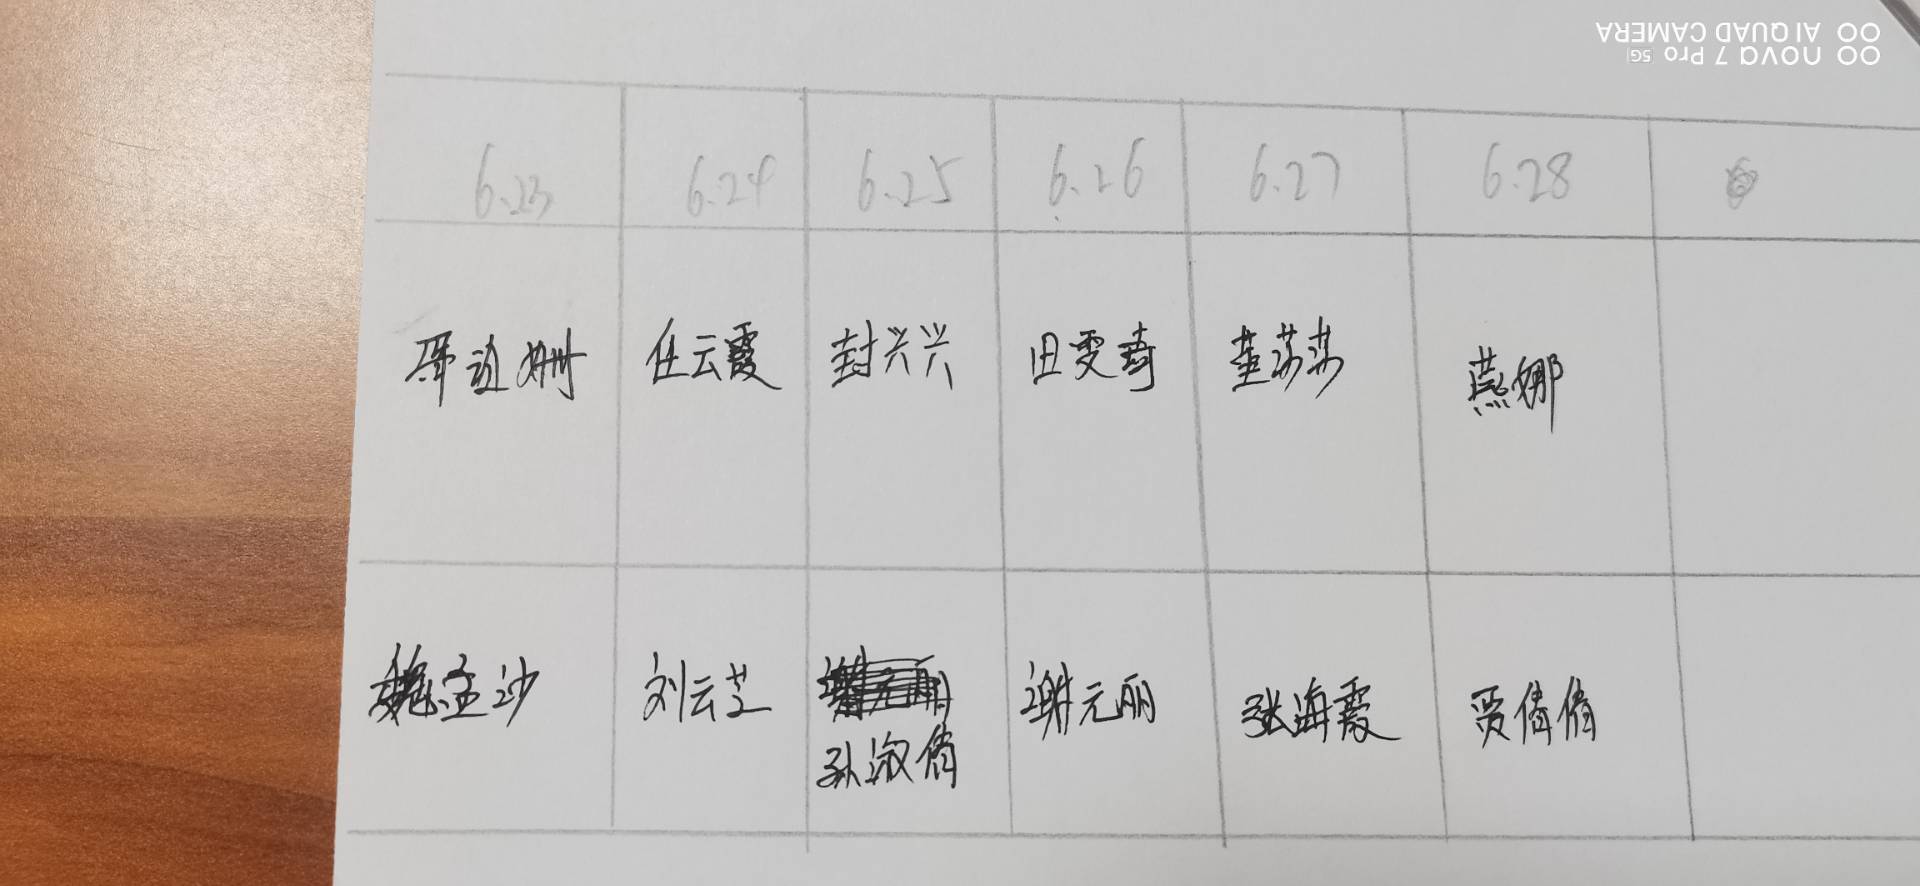 6.23 6.24 6.25 6.26 6.27 6.28
任云霞 封兴兴 田雯琦 董莎莎 燕娜
刘云芝 谢元丽 谢元丽 张海霞 贾倩倩
孙淑倩
nova 7 Pro 5G
AI QUAD CAMERA